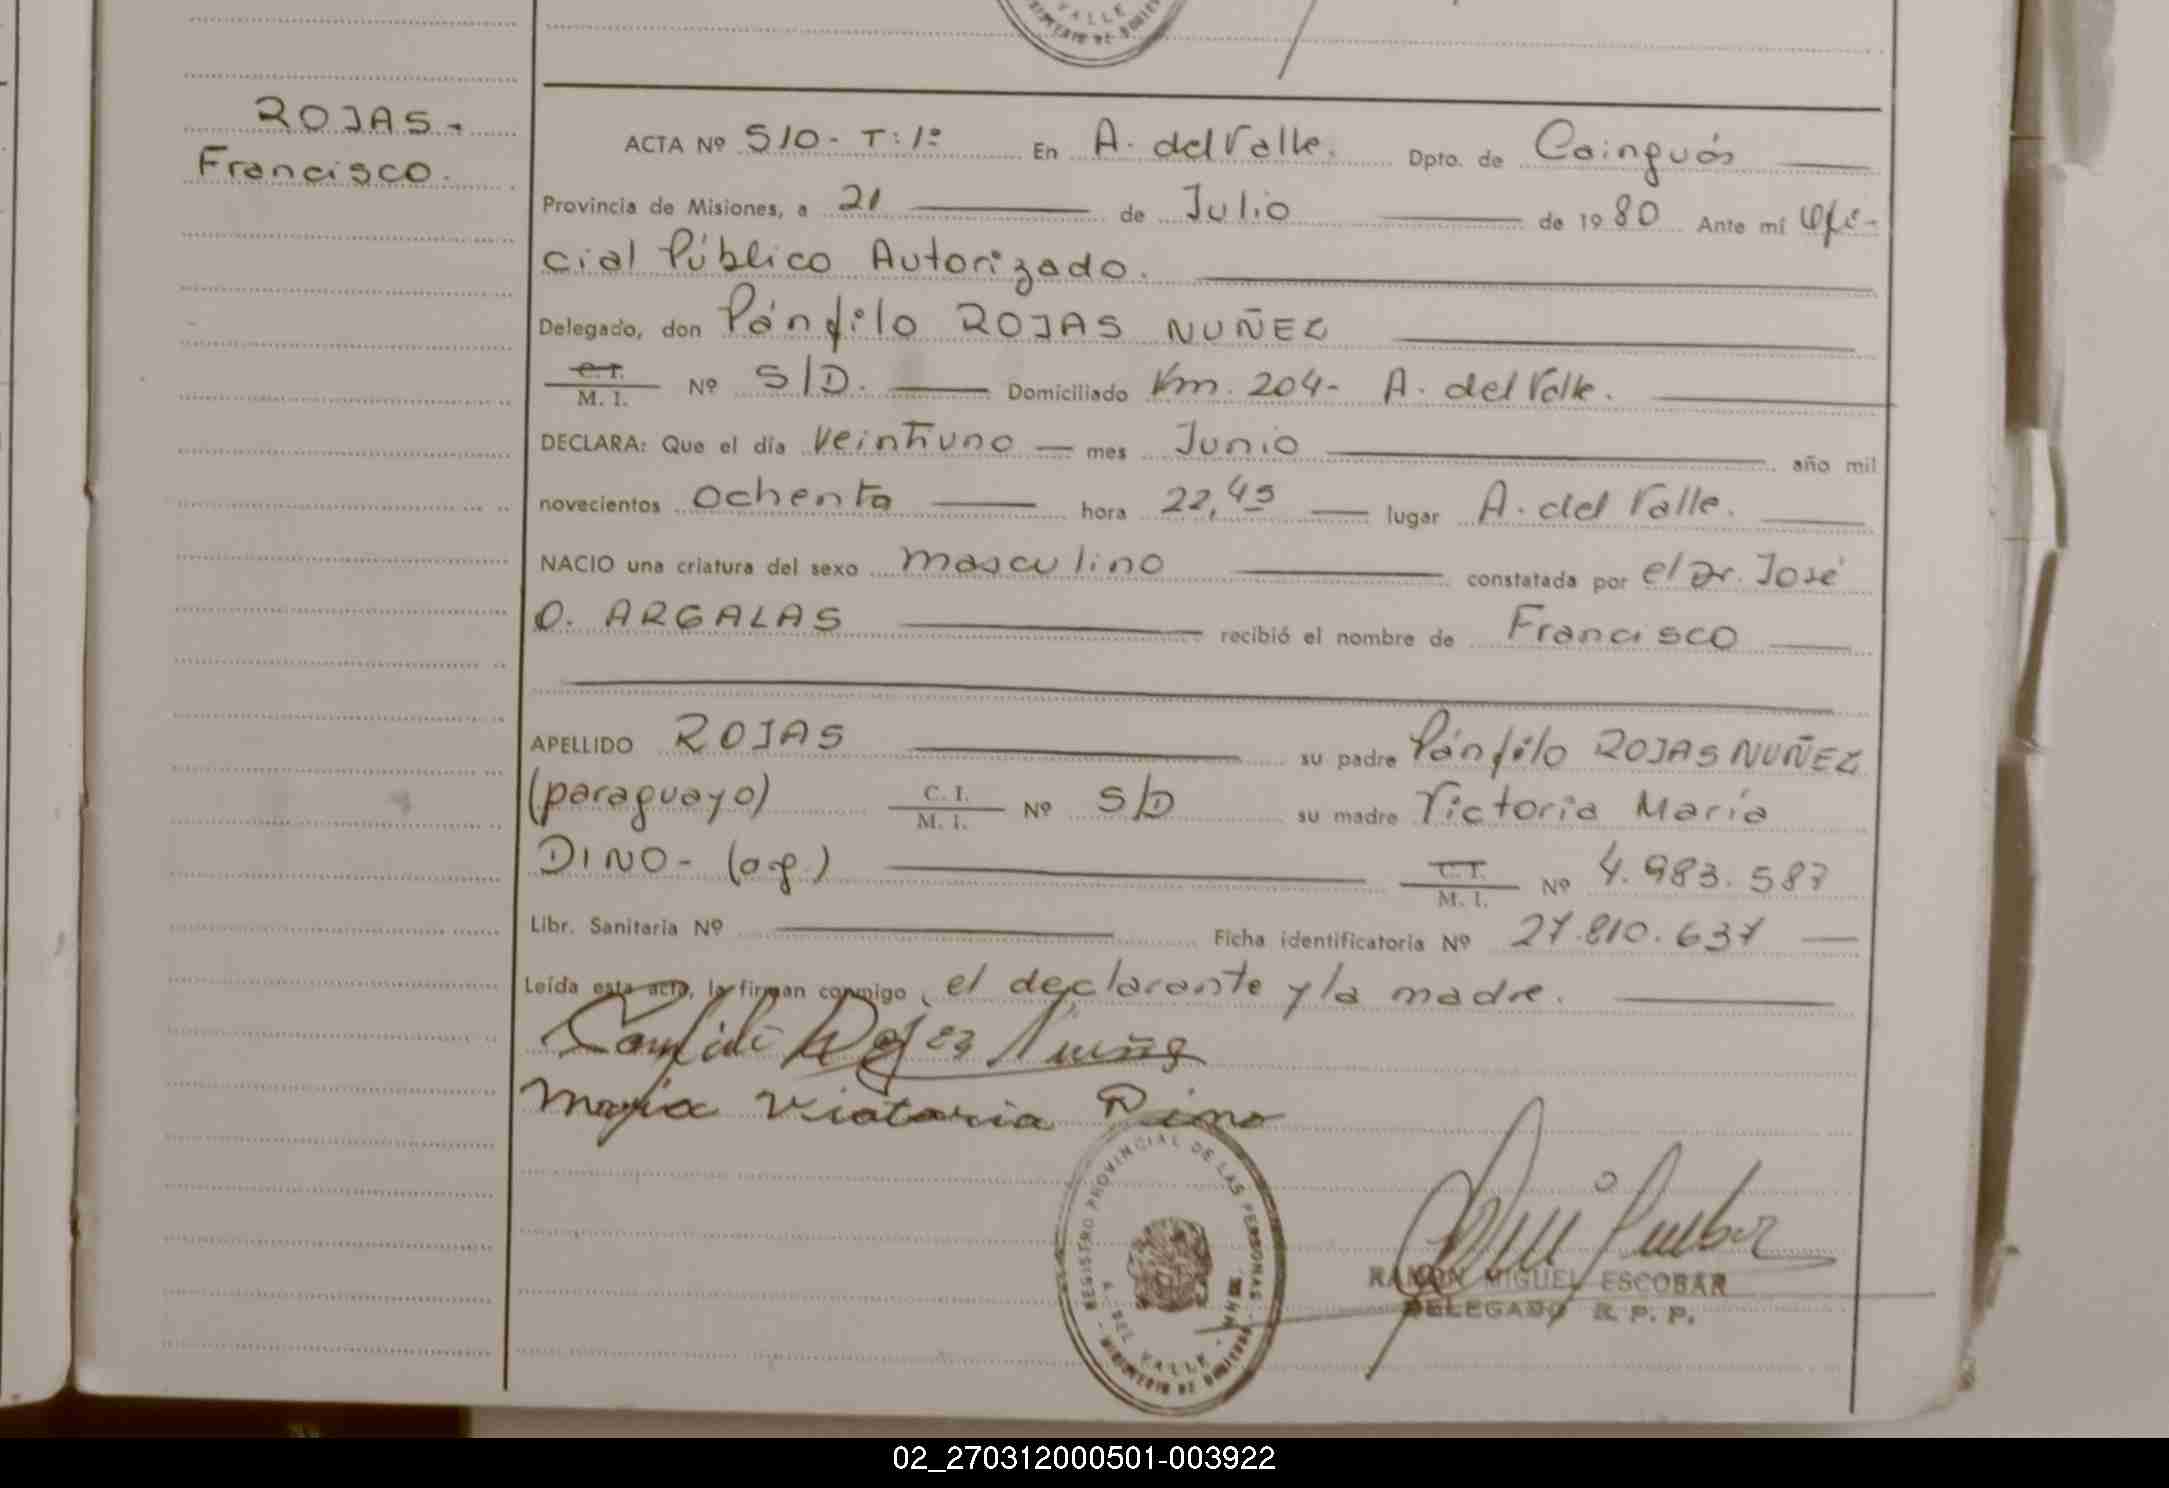 VALLE
ROJAS-
Francisco.
ACTA Nº 510- T:1º En A. del Valle. Dpto. de Cainguás
Provincia de Misiones, a 21 de Julio de 1980 Ante mí Ofi-
cial Público Autorizado.
Delegado, don Pánfilo ROJAS NUÑEZ
C. I. M. I. Nº S/D. Domiciliado Km. 204- A. del Valle.
DECLARA: Que el día veintiuno mes Junio año mil
novecientos ochenta hora 22,45 lugar A. del Valle.
NACIO una criatura del sexo masculino constatada por el Dr. José
O. ARGALAS recibió el nombre de Francisco
APELLIDO ROJAS su padre Pánfilo ROJAS NUÑEZ
(paraguayo) C. I. M. I. Nº S/D su madre Victoria María
DINO- (arg.) C. I. M. I. Nº 4.983.587
Libr. Sanitaria Nº Ficha identificatoria Nº 27.810.637
Leída esta acta, la firman conmigo, el declarante y la madre.
Rojas Nuñez
María Victoria Dino
REGISTRO PROVINCIAL DE LAS PERSONAS
A. DEL VALLE - MNES.
MINISTERIO DE GOBIERNO
RAMON MIGUEL ESCOBAR
DELEGADO R. P. P.
02_270312000501-003922